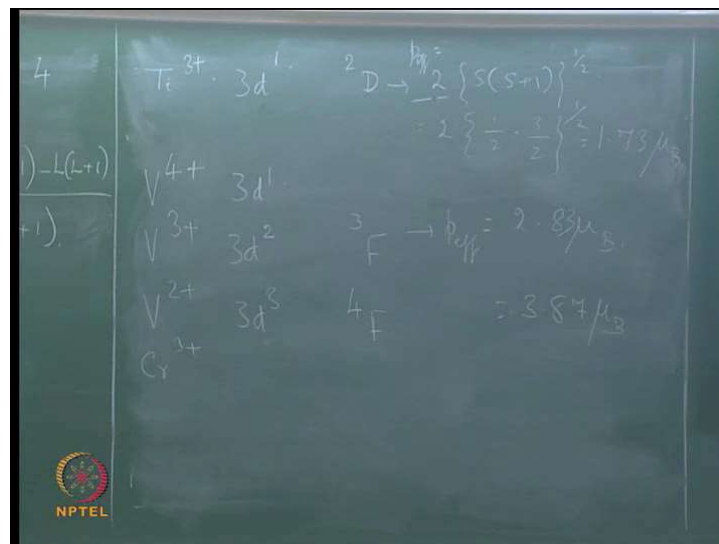 4
1) - L(L+1)
+1).
Ti³⁺ · 3d¹· ²D → p_eff = 2 {S(S+1)}^1/2
= 2 {1/2 · 3/2}^1/2 = 1.73 μ_B
V⁴⁺ 3d¹·
V³⁺ 3d² ³F → p_eff = 2.83 μ_B.
V²⁺ 3d³ ⁴F = 3.87 μ_B
Cr³⁺
NPTEL